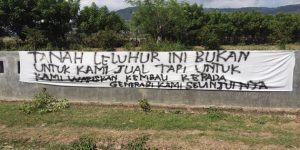 TANAH LELUHUR INI BUKAN
UNTUK KAMI JUAL TAPI UNTUK
KAMI WARISKAN KEMBALI KEPADA
GENERASI KAMI SELANJUTNYA